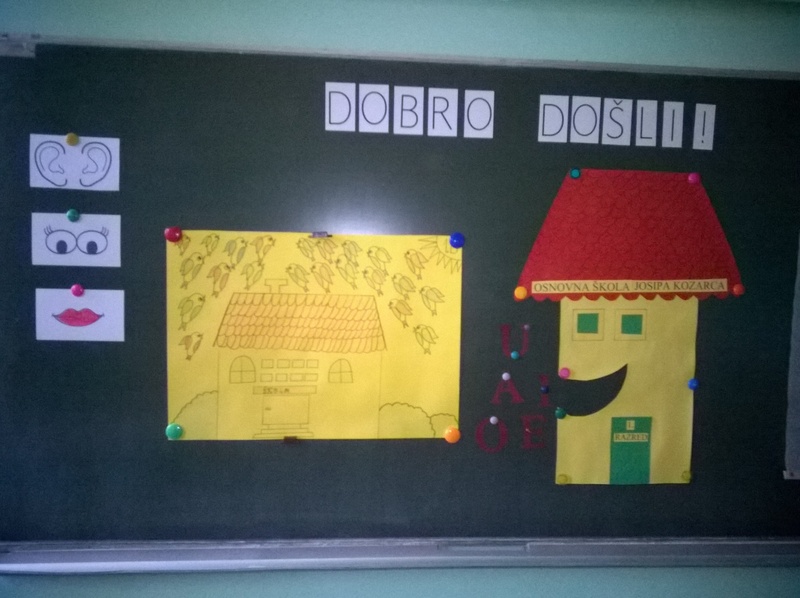 DOBRO DOŠLI!
OSNOVNA ŠKOLA JOSIPA KOZARCA
U
A I
O E
I.
RAZRED